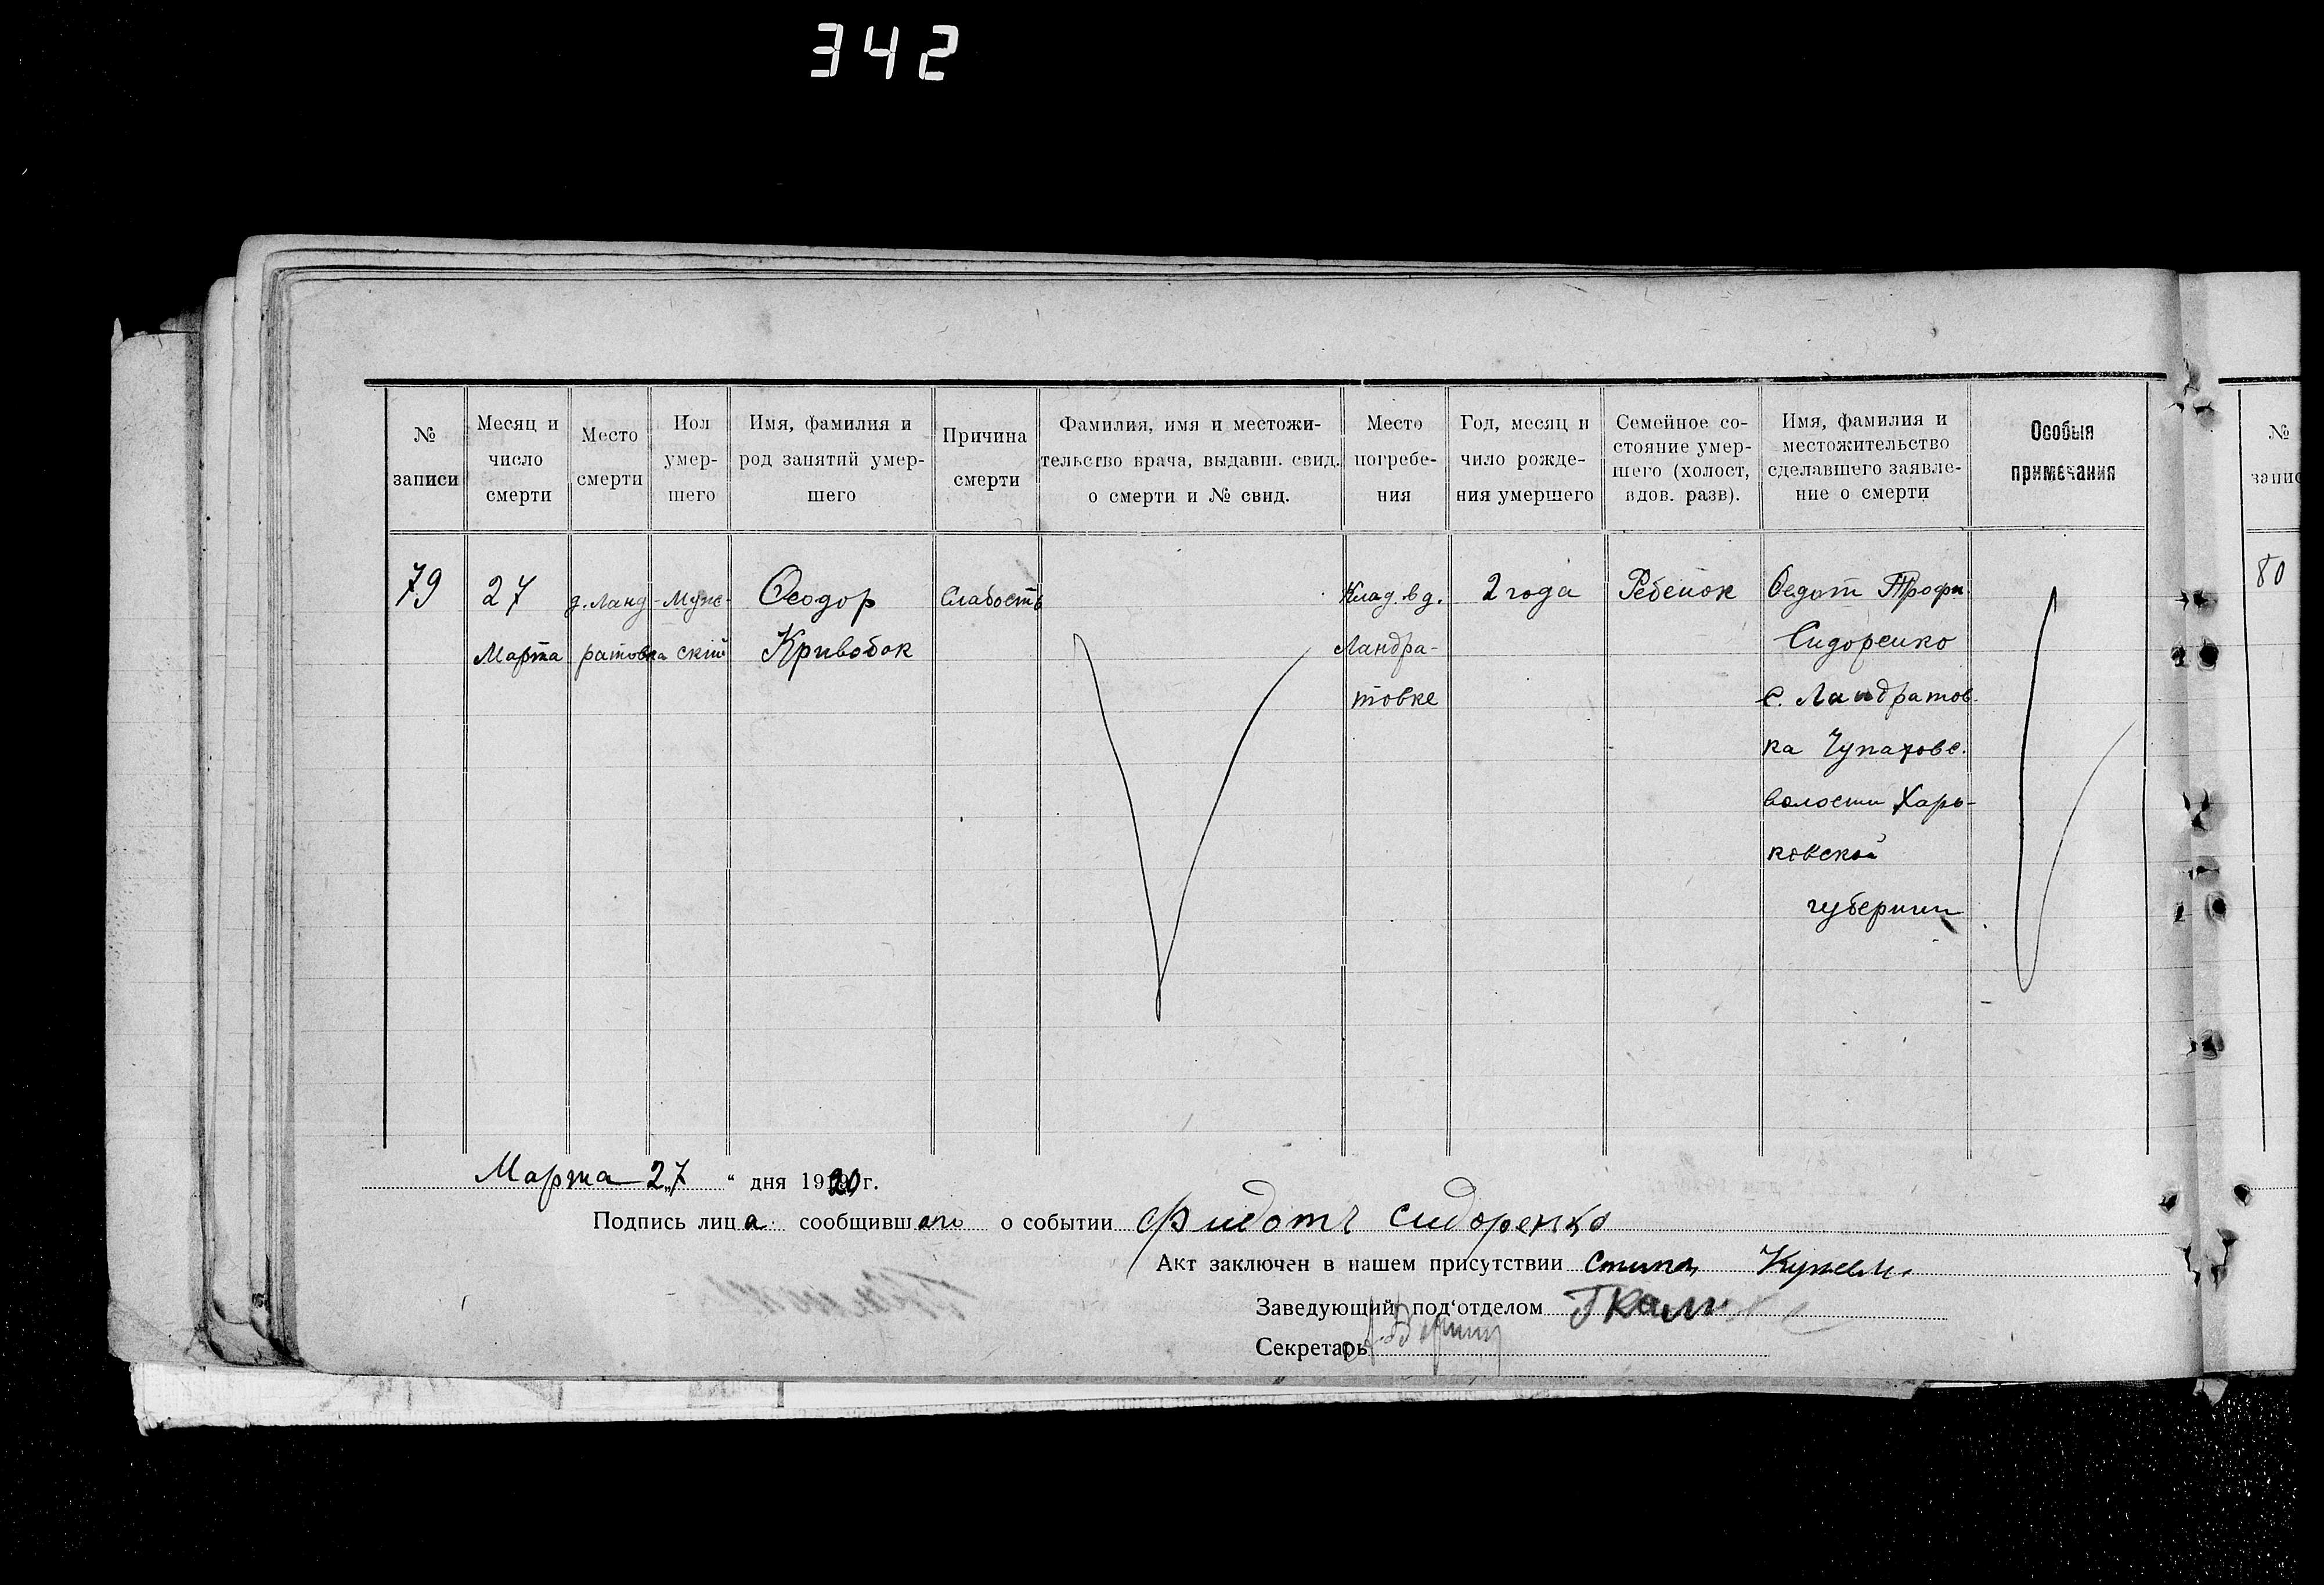 342
№ записи
Месяц и число смерти
Место смерти
Пол умер-шего
Имя, фамилия и род занятий умер-шего
Причина смерти
Фамилия, имя и местожи-тельство врача, выдавш. свид. о смерти и № свид.
Место погребе-ния
Год, месяц и чило рожде-ния умершего
Семейное со-стояние умер-шего (холост, вдов. разв).
Имя, фамилия и местожительство сделавшего заявле-ние о смерти
Особыя примечания
№ запис
79
27
Марта
д. Ланд-
ратовка
Муже-
ский
Ѳеодор
Кривобок
Слабость
Клад. в д.
Ландра-
товке
2 года
Ребенок
Ѳедот Трофи.
Сидоренко
с. Ландратов-
ка Чупахове.
волости Харь-
ковской
губернии
80
Марта 27 " дня 1920 г.
Подпись лица сообщивш о событии Фидотъ Сидоренко
Акт заключен в нашем присутствии
Заведующий под'отделом
Секретарь